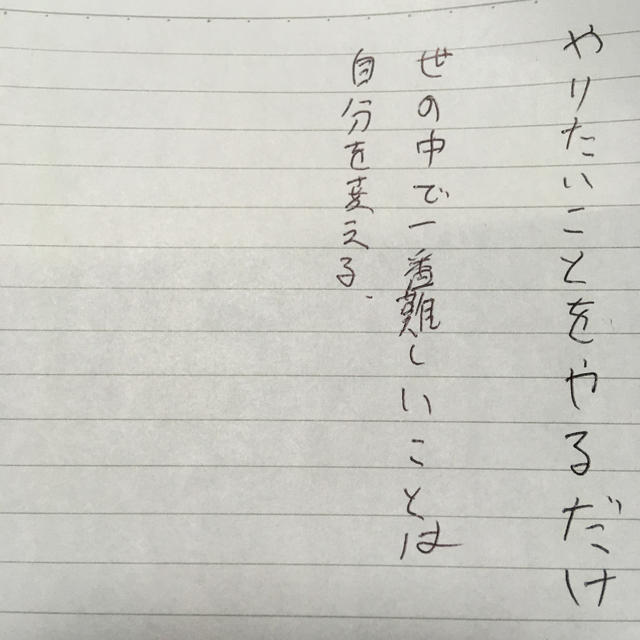 やりたいことをやるだけ
世の中で一番難しいことは
自分を変える.